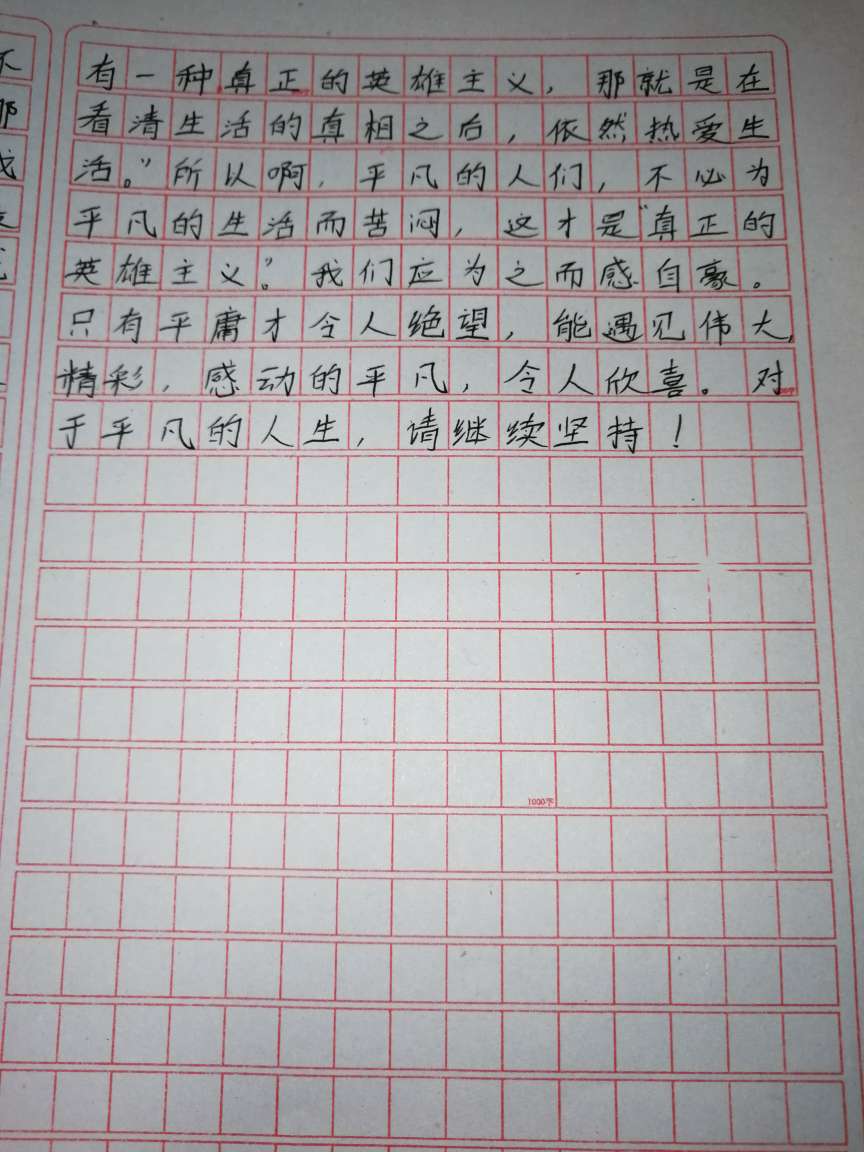 有一种真正的英雄主义，那就是在
看清生活的真相之后，依然热爱生
活。”所以啊，平凡的人们，不必为
平凡的生活而苦闷，这才是“真正的
英雄主义”。我们应为之而感自豪。
只有平庸才令人绝望，能遇见伟大，
精彩，感动的平凡，令人欣喜。对
于平凡的人生，请继续坚持！
1000字